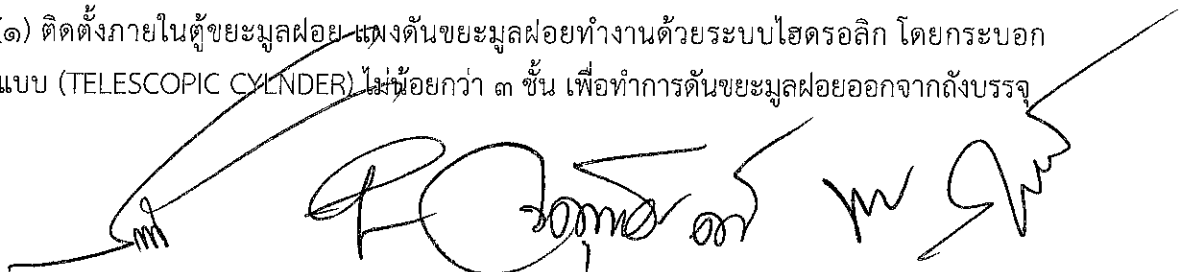 (๑) ติดตั้งภายในตู้ขยะมูลฝอย แผงดันขยะมูลฝอยทำงานด้วยระบบไฮดรอลิก โดยกระบอก
แบบ (TELESCOPIC CYLNDER) ไม่น้อยกว่า ๓ ชั้น เพื่อทำการดันขยะมูลฝอยออกจากถังบรรจุ